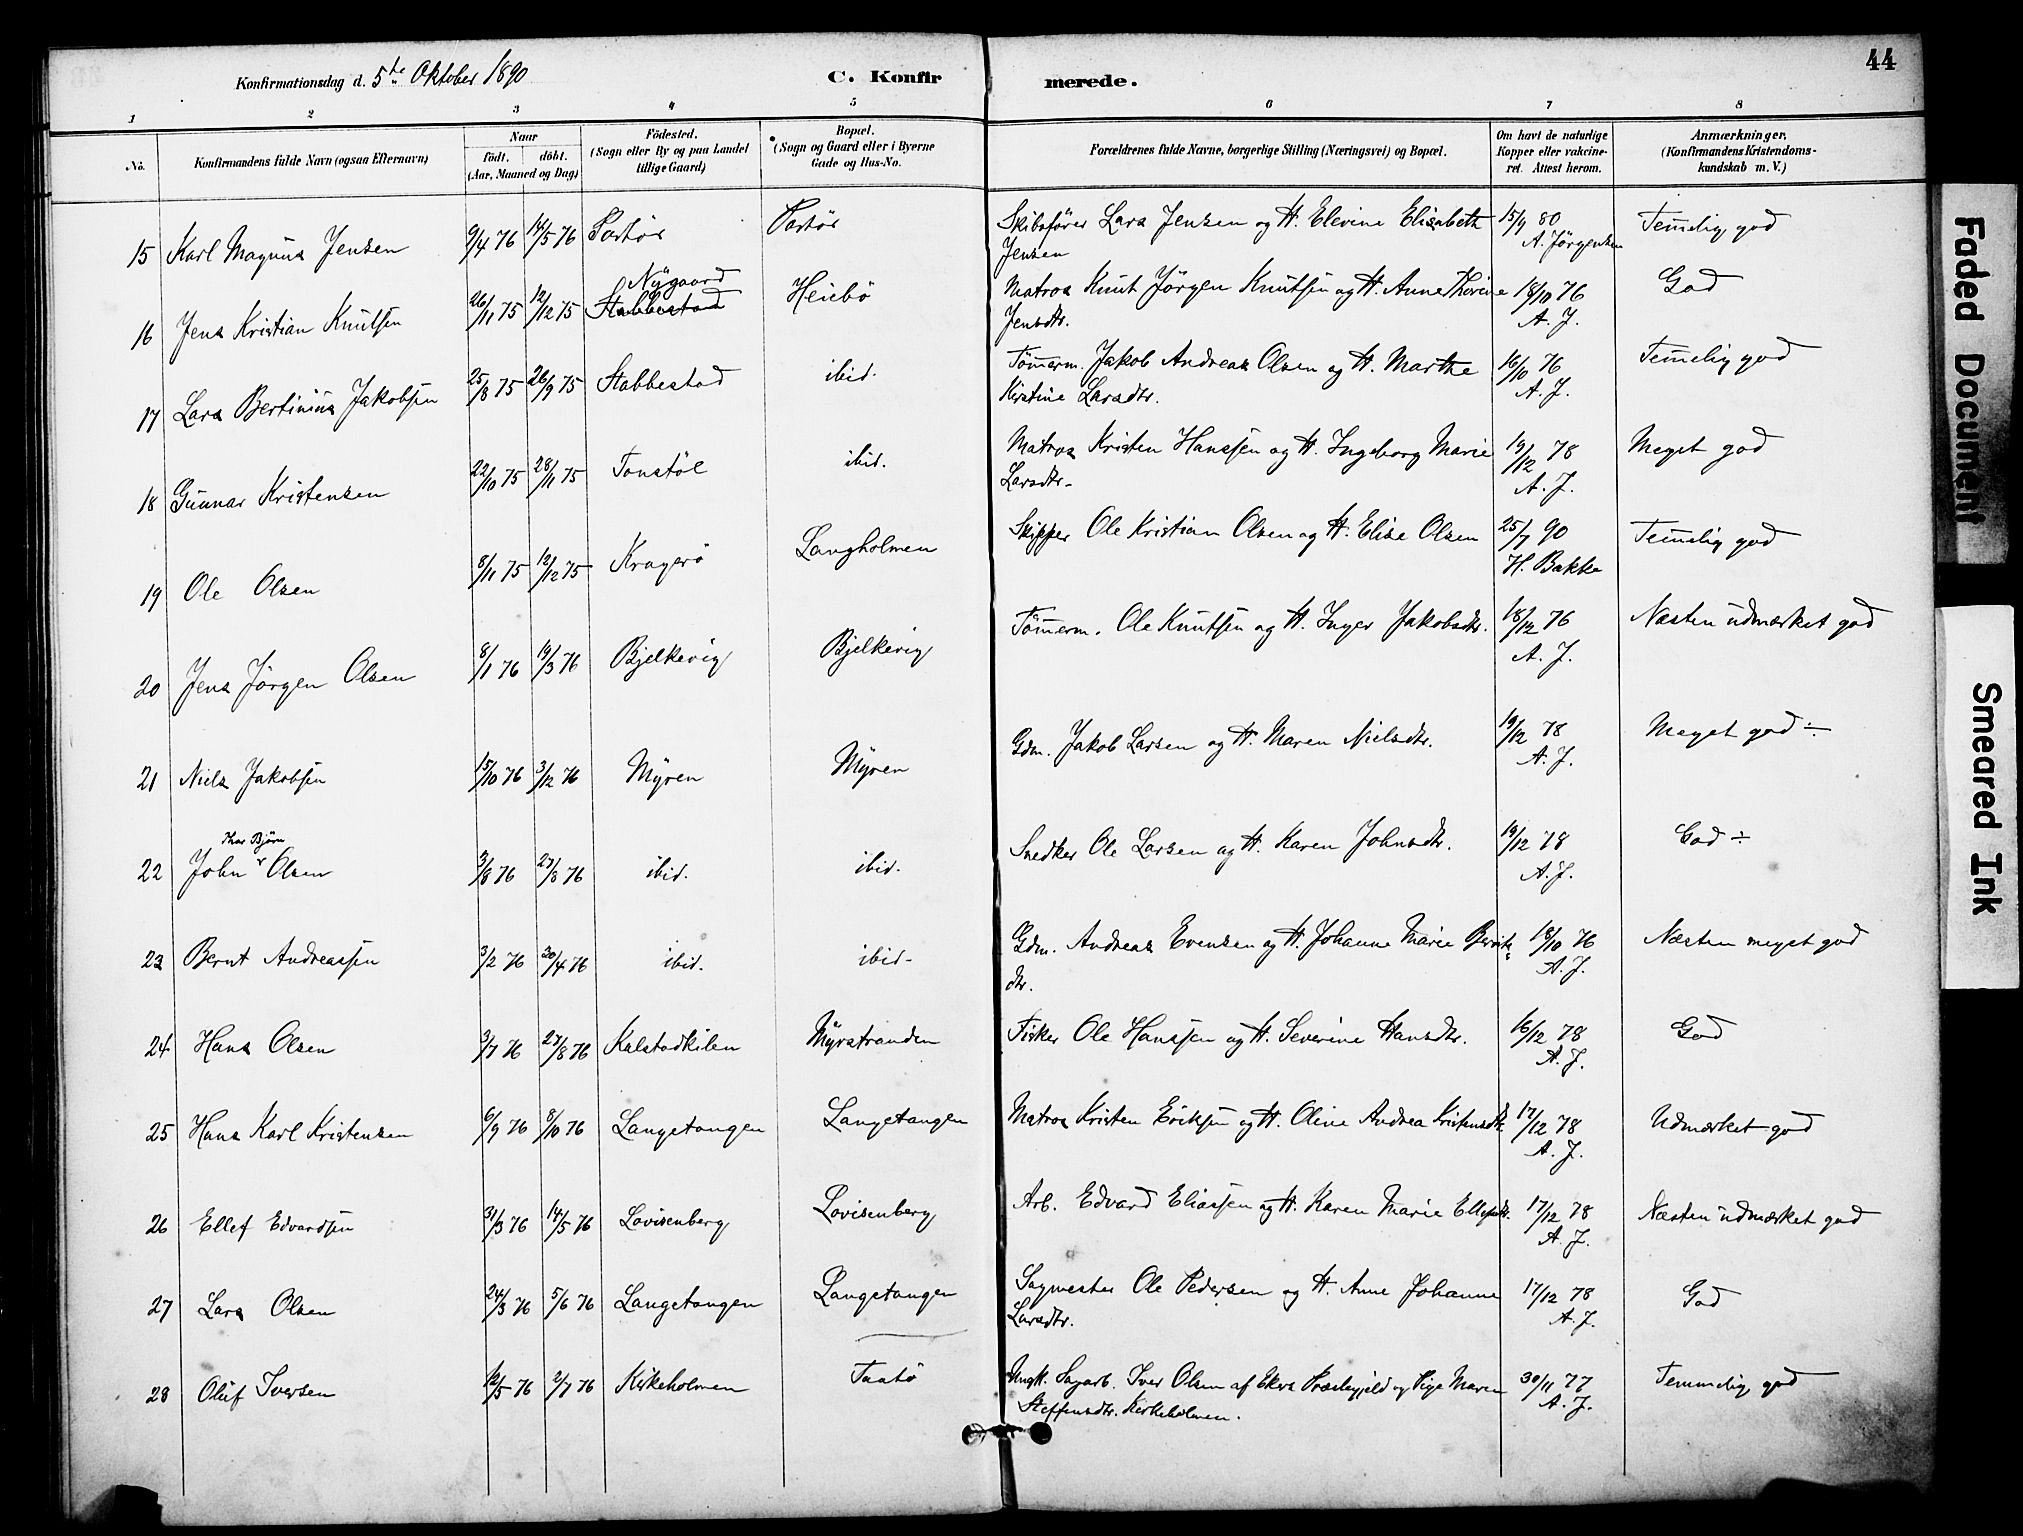 44
Konfirmationsdag d. 5te Oktober 1890 C. Konfirmerede.
1 2 3 4 5 6 7 8
No. Konfirmandens fulde Navn (ogsaa Efternavn) Naar født. døbt. (Aar, Maaned og Dag) Födested. (Sogn eller By og paa Landet tillige Gaard) Bopæl. (Sogn og Gaard eller i Byerne Gade og Hus-No. Forældrenes fulde Navne, borgerlige Stilling (Næringsvei) og Bopæl. Om havt de naturlige Kopper eller vakcineret. Attest herom. Anmærkninger. (Konfirmandens Kristendomskundskab m. V.)
15 Karl Magnus Jensen 9/4 76 14/5 76 Portør Portør Skibsfører Lars Jensen og H. Elevine Elisabeth Jensen 15/9 80 A. Jörgensen Temelig god
16 Jens Kristian Knutsen 26/11 75 12/12 75 Nygaard Stabbestad Heiebö Matros Knut Jörgen Knutsen og H. Anne Thorine Jensdtr. 18/10 76 A. J. God
17 Lars Bertinius Jakobsen 25/8 75 26/9 75 Stabbestad ibid. Tömerm. Jakob Andreas Olsen og H. Marthe Kirstine Larsdtr. 16/10 76 A. J. Temelig god
18 Gunnar Kristensen 22/10 75 28/11 75 Tonstöl ibid. Matros Kristen Hanssen og H. Ingeborg Marie Larsdtr. 19/12 78 A. J. Meget god
19 Ole Olsen 8/11 75 12/12 75 Kragerö Langholmen Skipper Ole Kristian Olsen og H. Elise Olsen 25/7 90 H. Bakke Temelig god
20 Jens Jörgen Olsen 8/1 76 19/3 76 Bjelkevig Bjelkevig Tömerm. Ole Knutsen og H. Inger Jakobsdtr. 18/12 76 A. J. Næsten udmærket god
21 Niels Jakobsen 15/10 76 3/12 76 Myren Myren Gdm. Jakob Larsen og H. Maren Nielsdtr. 19/12 78 A. J. Meget god ÷
22 John Thorbjörn Olsen 3/8 76 27/8 76 ibid. ibid. Snedker Ole Larsen og H. Karen Johnsdtr. 19/12 78 A. J. God ÷
23 Bernt Andreassen 3/2 76 30/4 76 ibid. ibid. Gdm. Andreas Evensen og H. Johanne Marie Berntsdtr. 18/10 76 A. J. Næsten meget god
24 Hans Olsen 3/7 76 27/8 76 Kalstadkilen Myrstranden Fisker Ole Hanssen og H. Severine Hansdtr. 16/12 78 A. J. God
25 Hans Karl Kristensen 6/9 76 8/10 76 Langetangen Langetangen Matros Kristen Eriksen og H. Oline Andrea Kristensdtr. 17/12 78 A. J. Udmærket god
26 Ellef Edvardsen 31/3 76 14/5 76 Lovisenberg Lovisenberg Arb. Edvard Eliassen og H. Karen Marie Ellefsdtr. 17/12 78 A. J. Næsten udmærket god
27 Lars Olsen 24/3 76 5/6 76 Langetangen Langetangen Sagmester Ole Pedersen og H. Anne Johanne Larsdtr. 17/12 78 A. J. God
28 Oluf Iversen 12/5 76 2/7 76 Kirkeholmen Taatö Ungk. Sagarb. Iver Olsen af Ekers Præstegjeld og Pige Maren Steffensdtr. Kirkeholmen. 30/11 77 A. J. Temmelig god
Faded Document
Smeared Ink